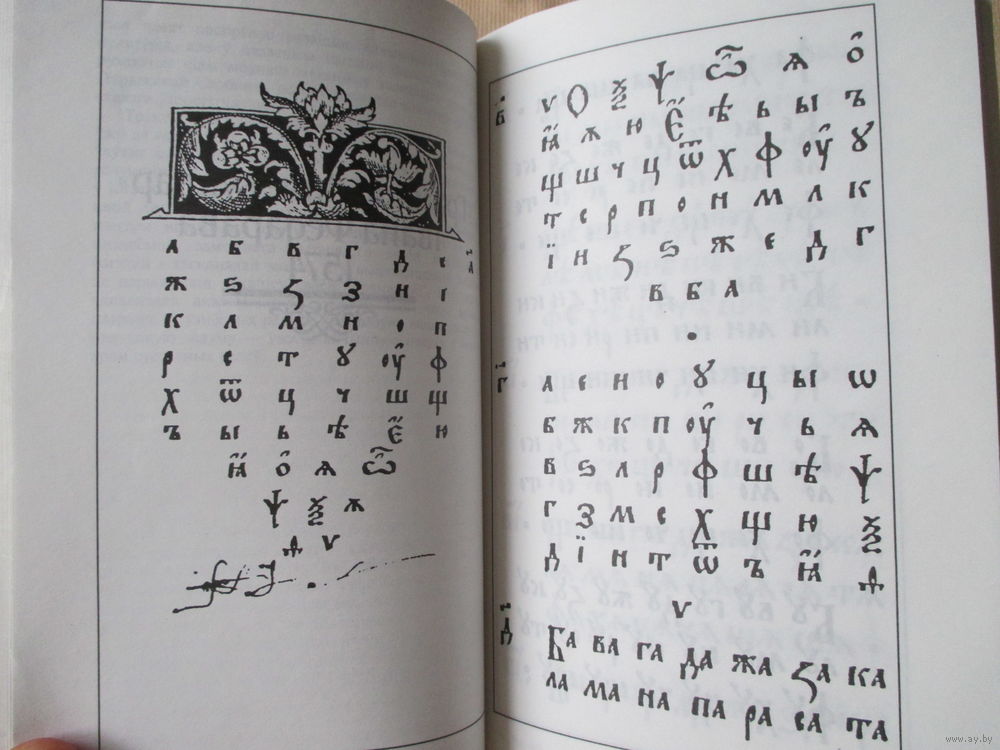 а б в г д е
ж ѕ ꙁ з и і
к л м н о п
р с т ꙋ оу̑ ф
х ѿ ц ч ш щ
ъ ы ь ѣ є҆ ю
ꙗ о҆ ѧ ѡ҆̑
ѱ ѯ ѫ
ѳ ѵ
ѵ Ѳ ѯ ѱ ѡ҆̑ ѧ о҆
ꙗ ѫ ю є҆ ѣ ь ы ъ
щ ш ч ц ѿ х ф оу̑ ꙋ
т с р п о н м л к
ї и ꙁ ѕ ж е д г
в б а
а е и о ꙋ ц ы ѡ
б ж к п оу̑ ч ь ѧ
в ѕ л р ф ш ѣ ѱ
г з м с х щ ю ѯ
д ї н т ѿ ъ ꙗ ѳ
ѵ
Ба ва га да жа ꙁа ка
ла ма на па ра са та
www.ay.by